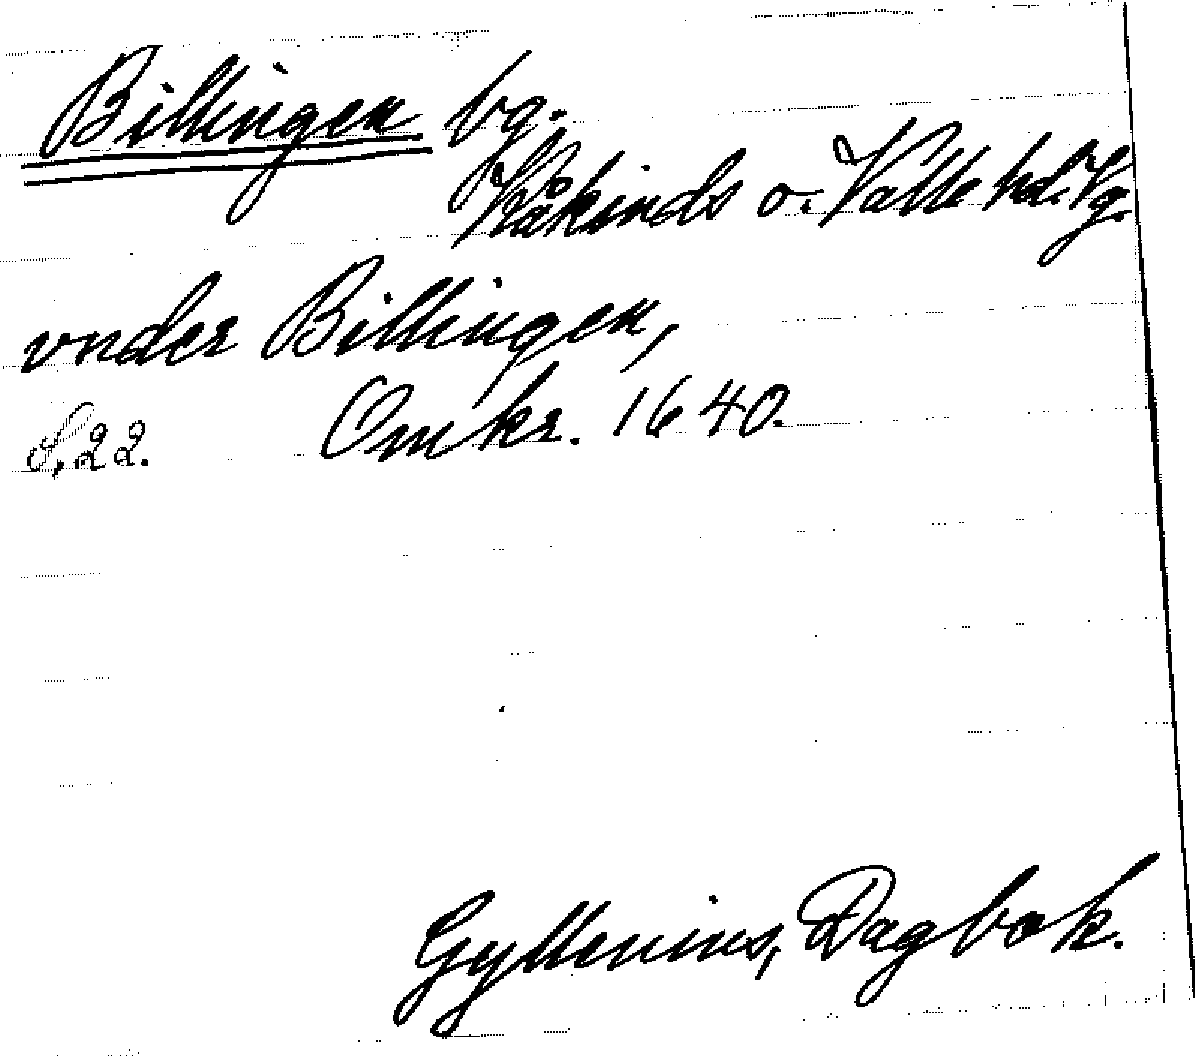 Billingen bg.
Kåkinds o. Valle hd. Vg.
vnder Billingen,
S. 22. Omkr. 1640.
Gyllenius, Dagbok.